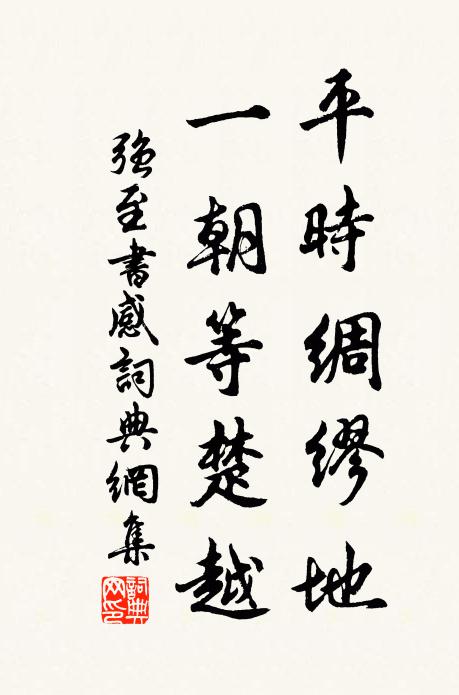 平時綢繆地
一朝等楚越
強至書感詞典網集
詞典
网印